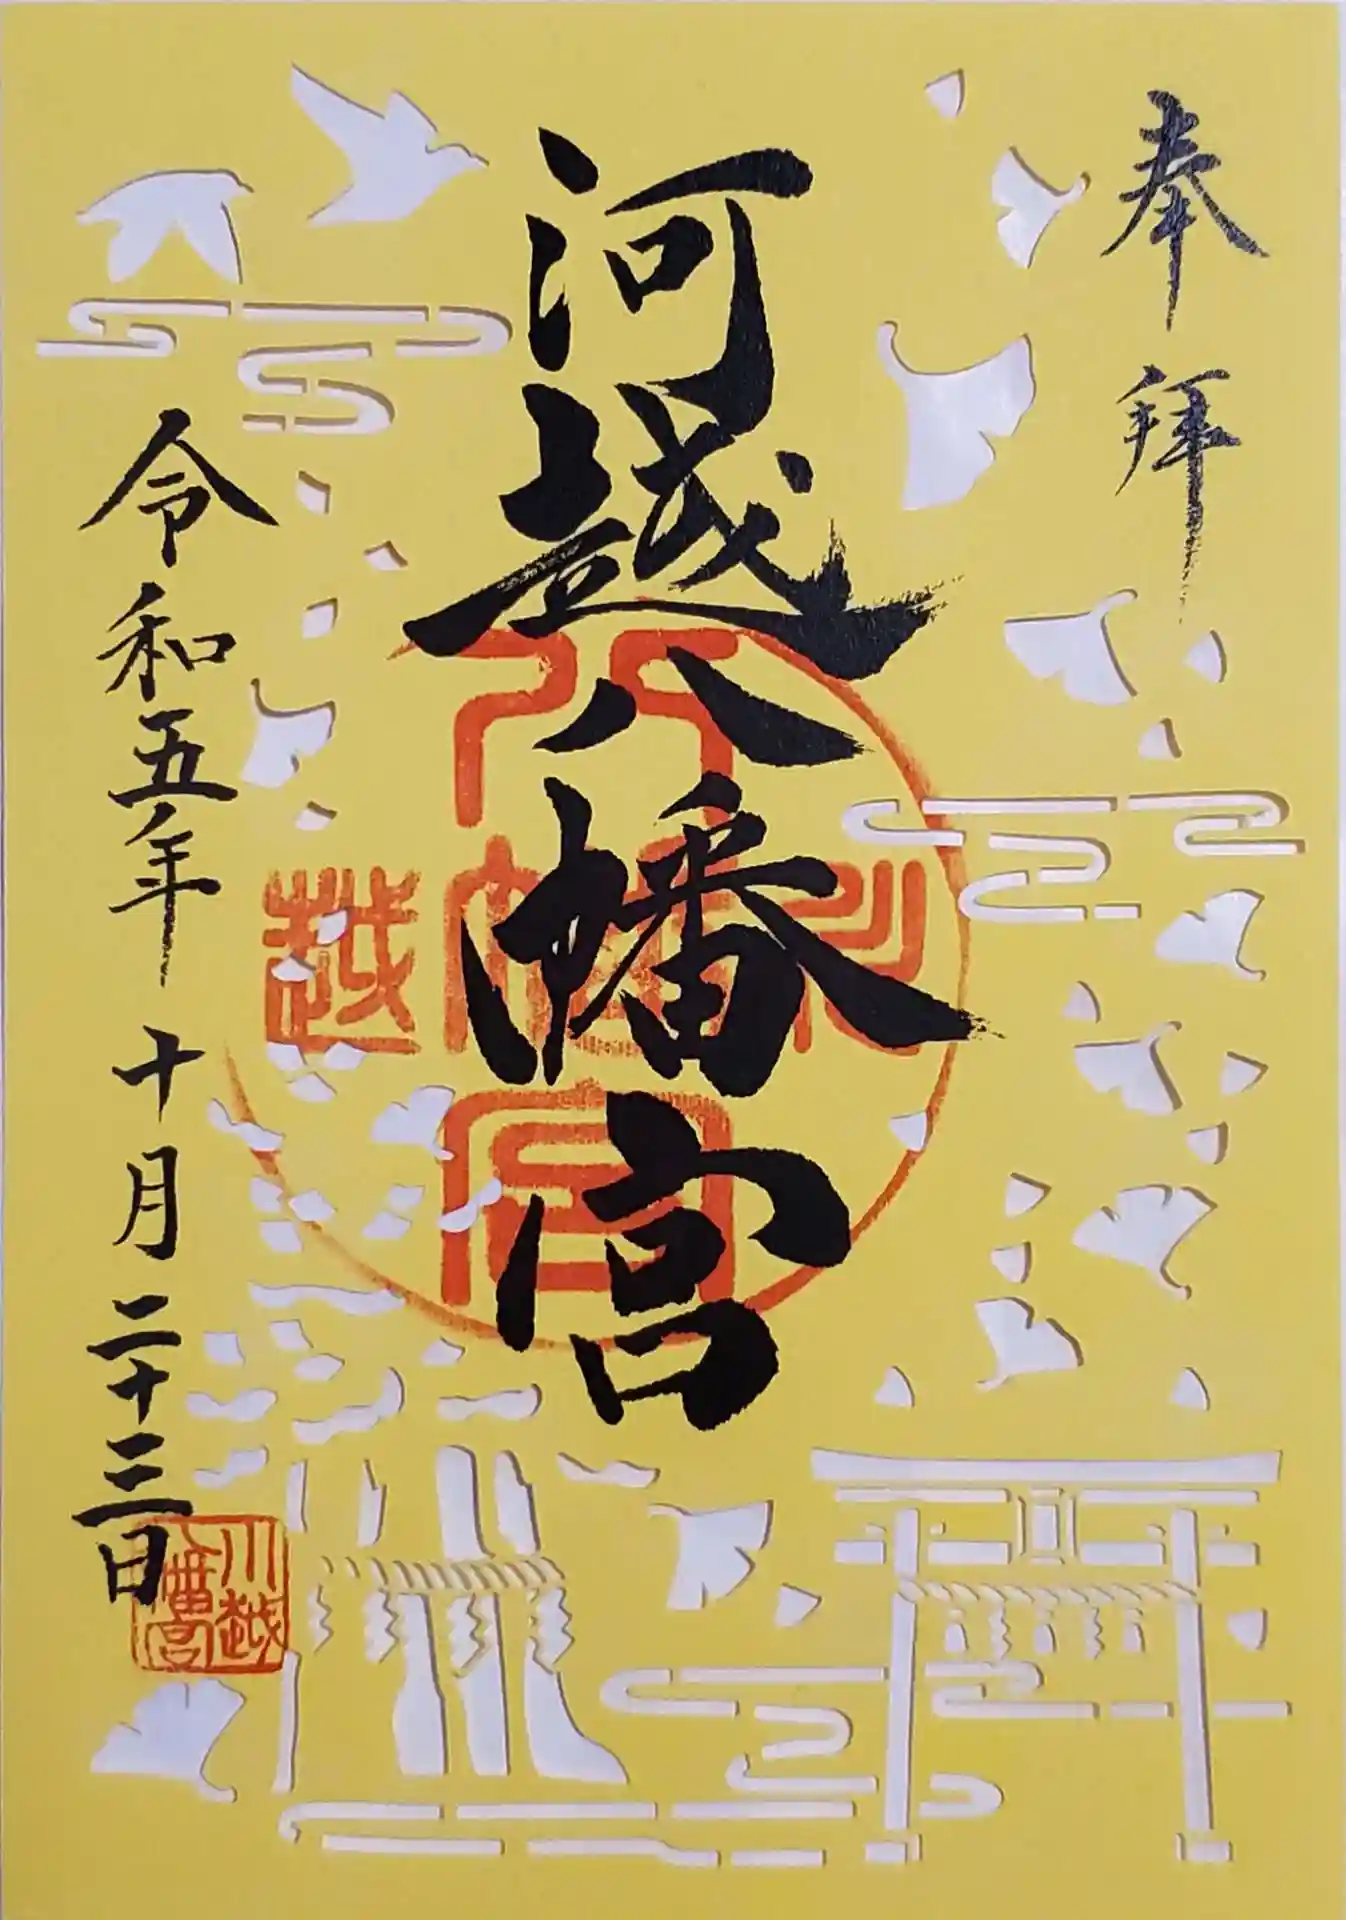 奉拝
河越八幡宮
川越
八幡宮
令和五年十月二十三日
川越
八幡宮